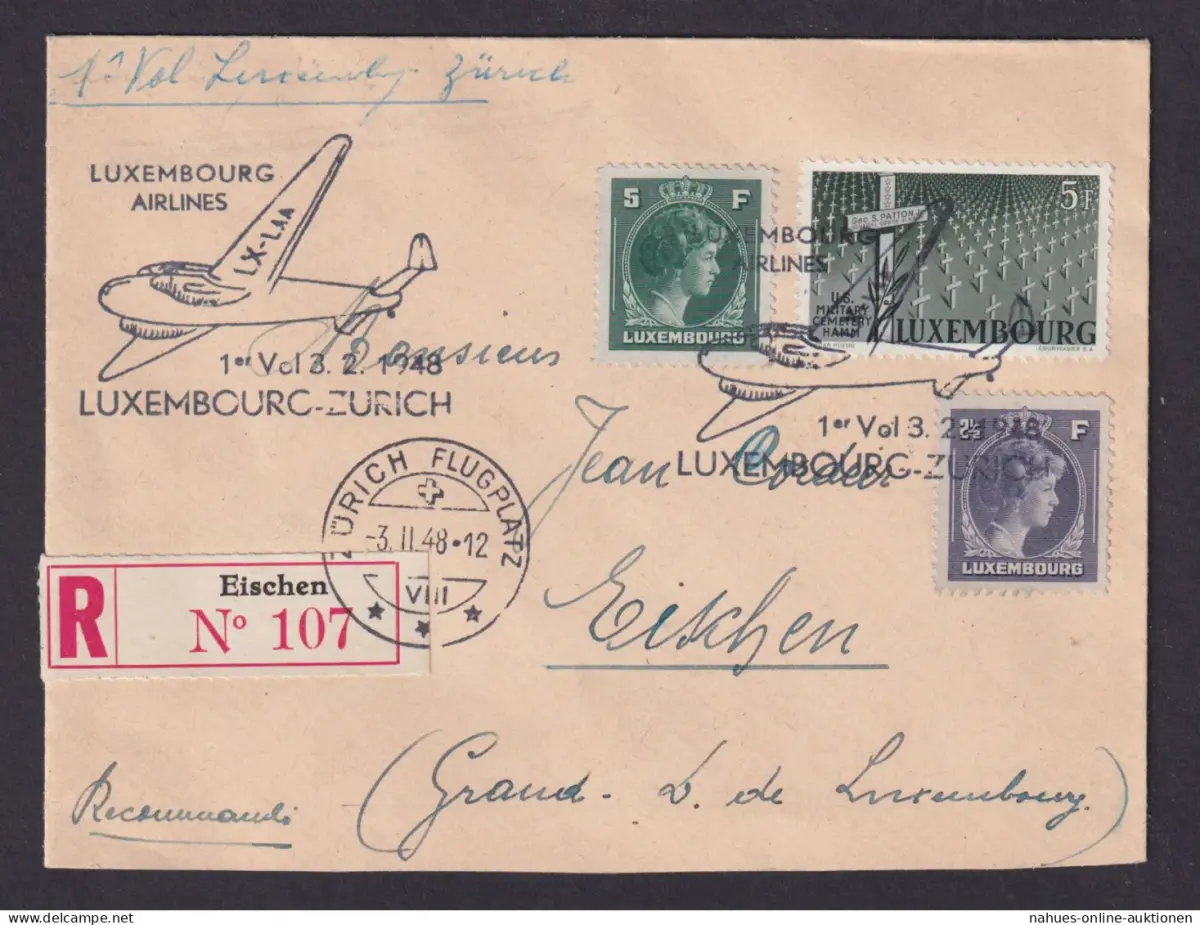 1ᵉ Vol Luxembg. Zürich
LUXEMBOURG
AIRLINES
LX-LAA
1er Vol 3. 2. 1948
LUXEMBOURG-ZURICH
5 F
LUXEMBOURG
5F
Geo. S. PATTON Jr
U.S.
MILITARY
CEMETERY
HAMM
LUXEMBOURG
COURVOISIER S.A.
LUXEMBOURG
AIRLINES
1er Vol 3. 2. 1948
LUXEMBOURG-ZURICH
2½ F
LUXEMBOURG
Monsieur
Jean Cordier
Eischen
ZÜRICH FLUGPLATZ
-3.II.48·12
VIII
R
Eischen
Nº 107
Recommandé
(Grand-D. de Luxembourg)
nahues-online-auktionen